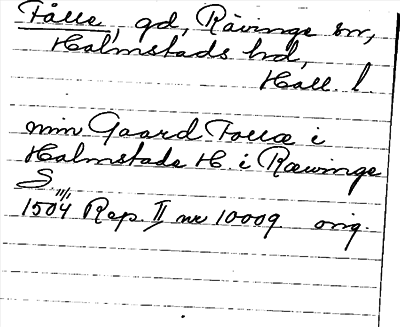 Fålle, gd, Rävinge sn,
Halmstads hd,
Hall. l.
min Gaard Follæ i
Halmstads H. i Ræwinge
S.
11/1
1504 Rep. II nr 10009 orig.